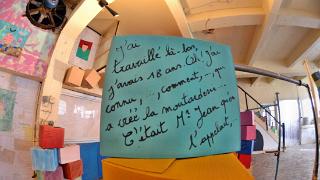 J'ai
travaillé là-bas,
j'avais 18 ans. Oh, j'ai
connu, ..., comment, ..., qui
a créé la moutarderie...
C'était Mr Jean qu'on
l'appelait,